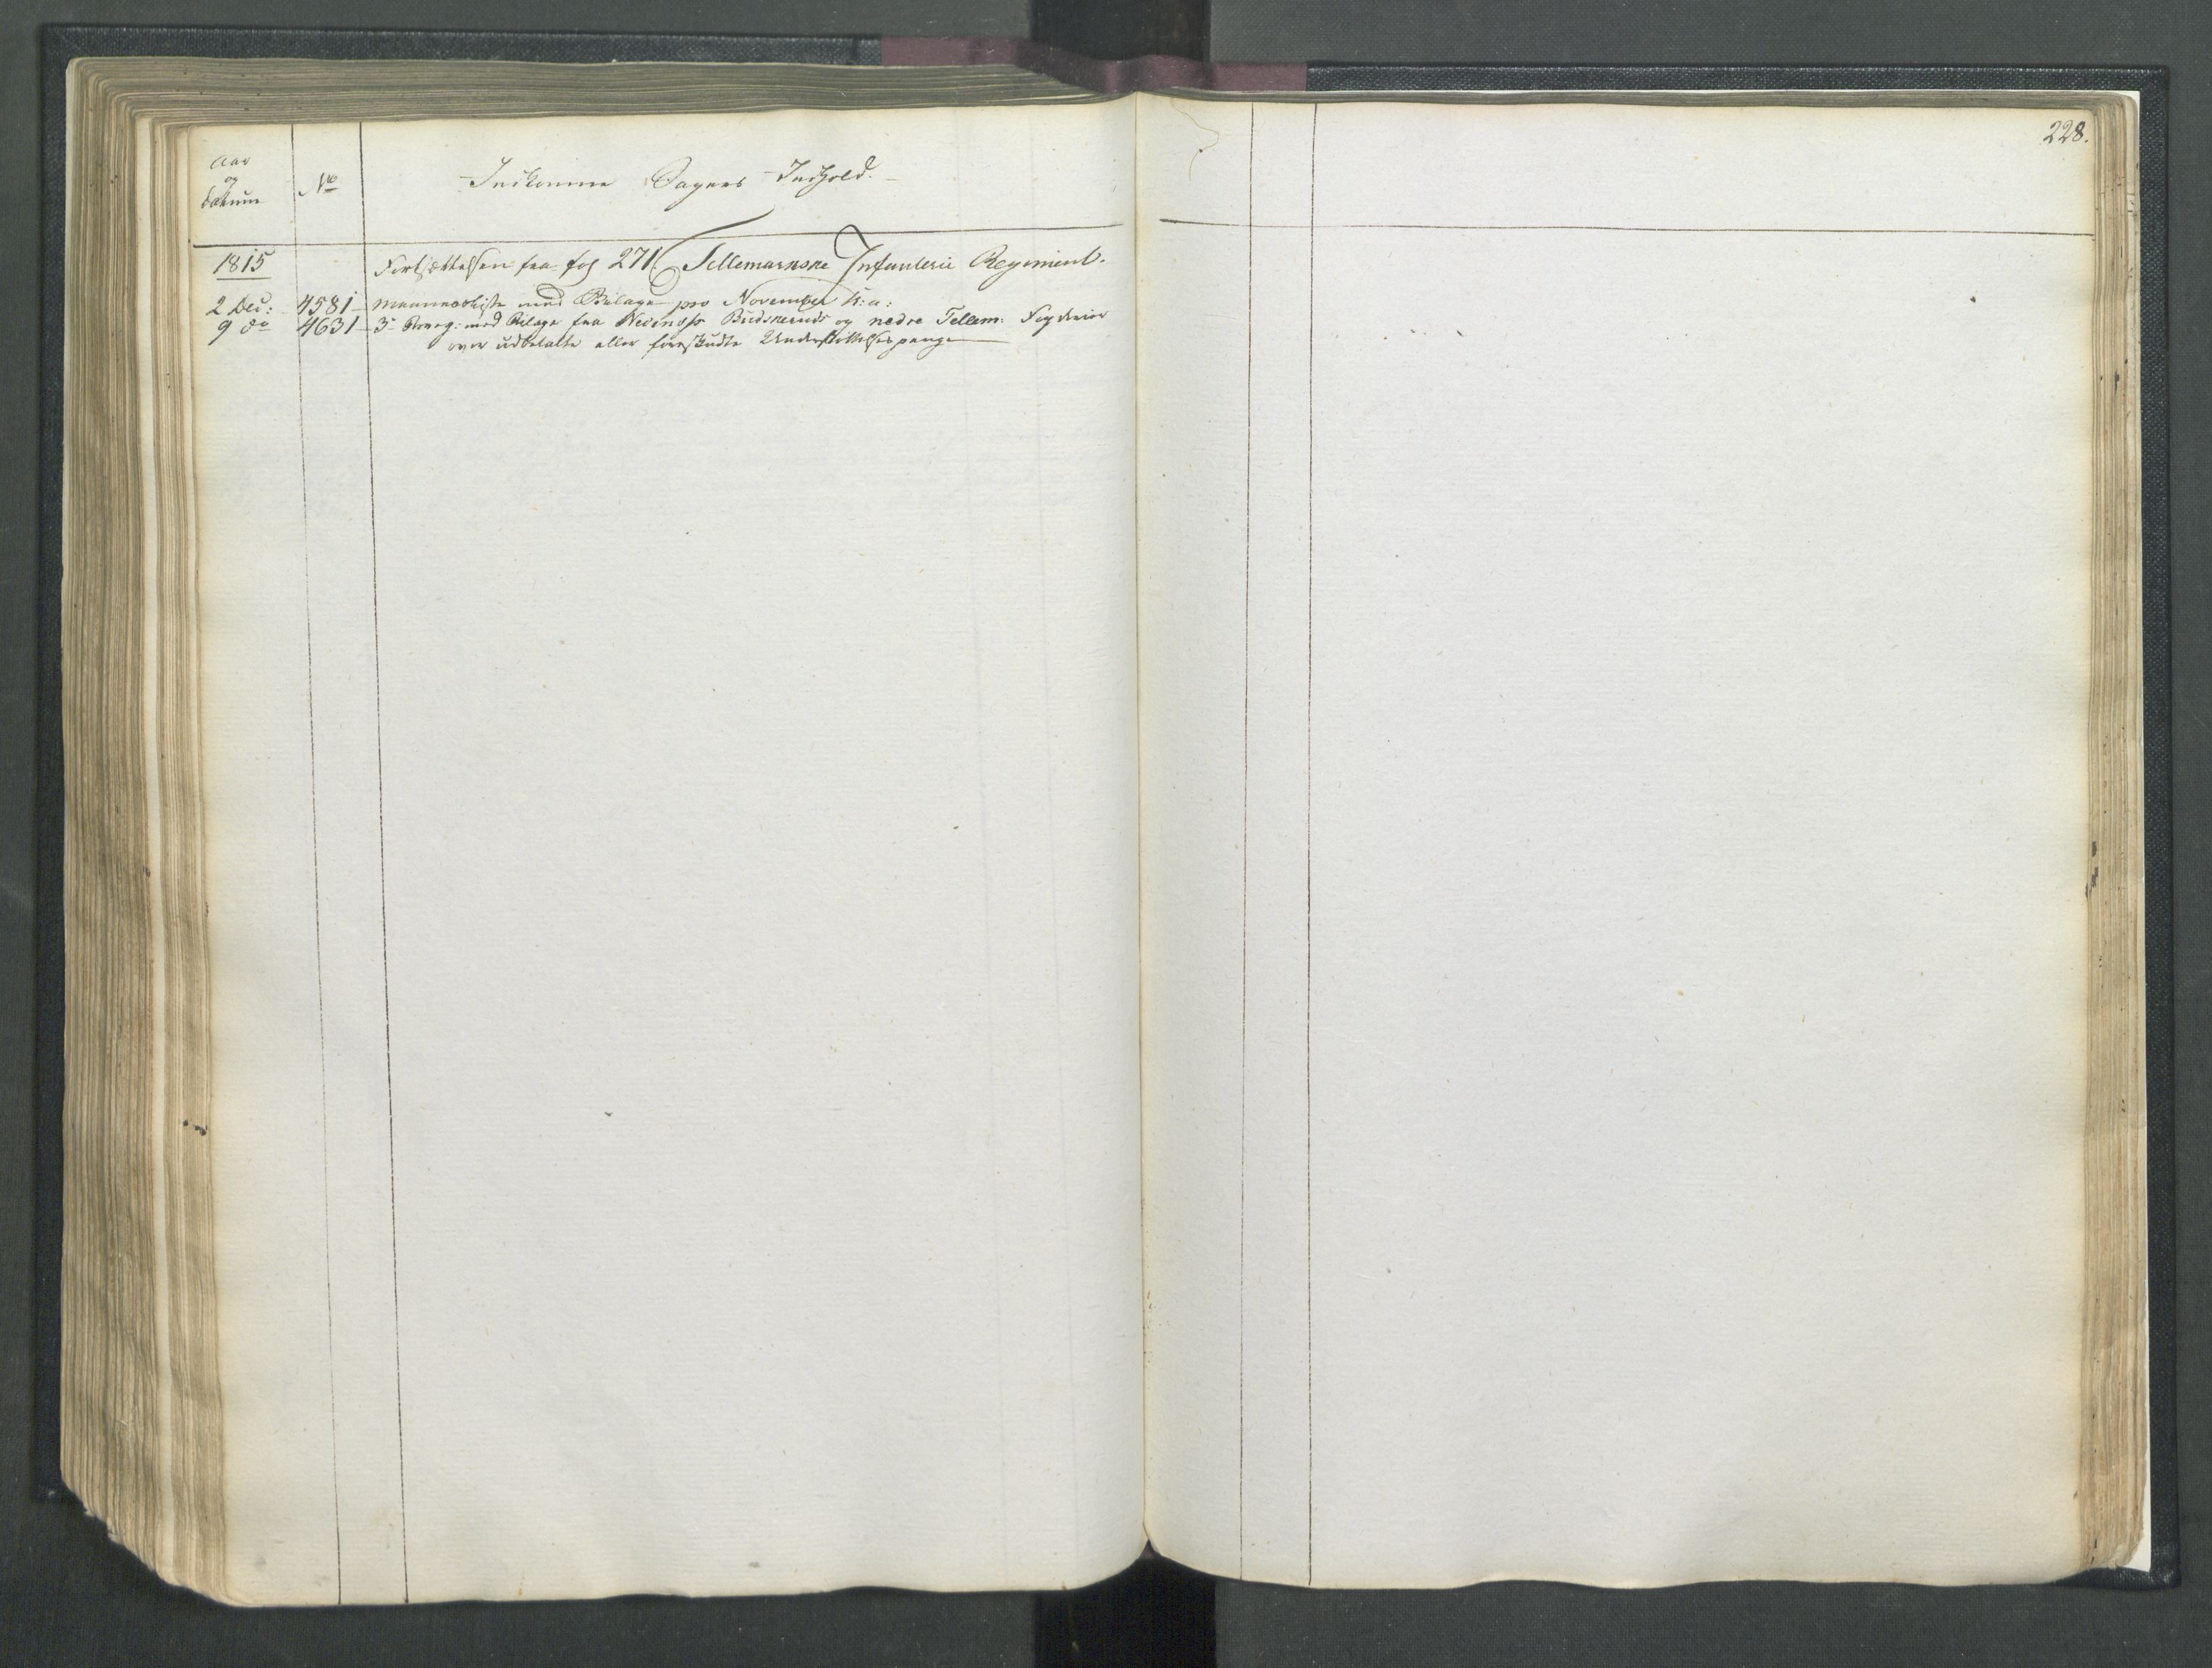 Aar
og
Datum
No
Indkomne Sagers Indhold.
1815
Fortsættelsen fra fol 271. Tellemarkske Infanterie Regiment.
2 Dec: 4581 Mandskabsliste med Bilage pro November h: a:
9 do 4631 3de med Bilage fra Nedenæs Budskeruds og nedre Tellem: Fogderier
over udbetalte eller forskudte Understøttelsespenge
228.